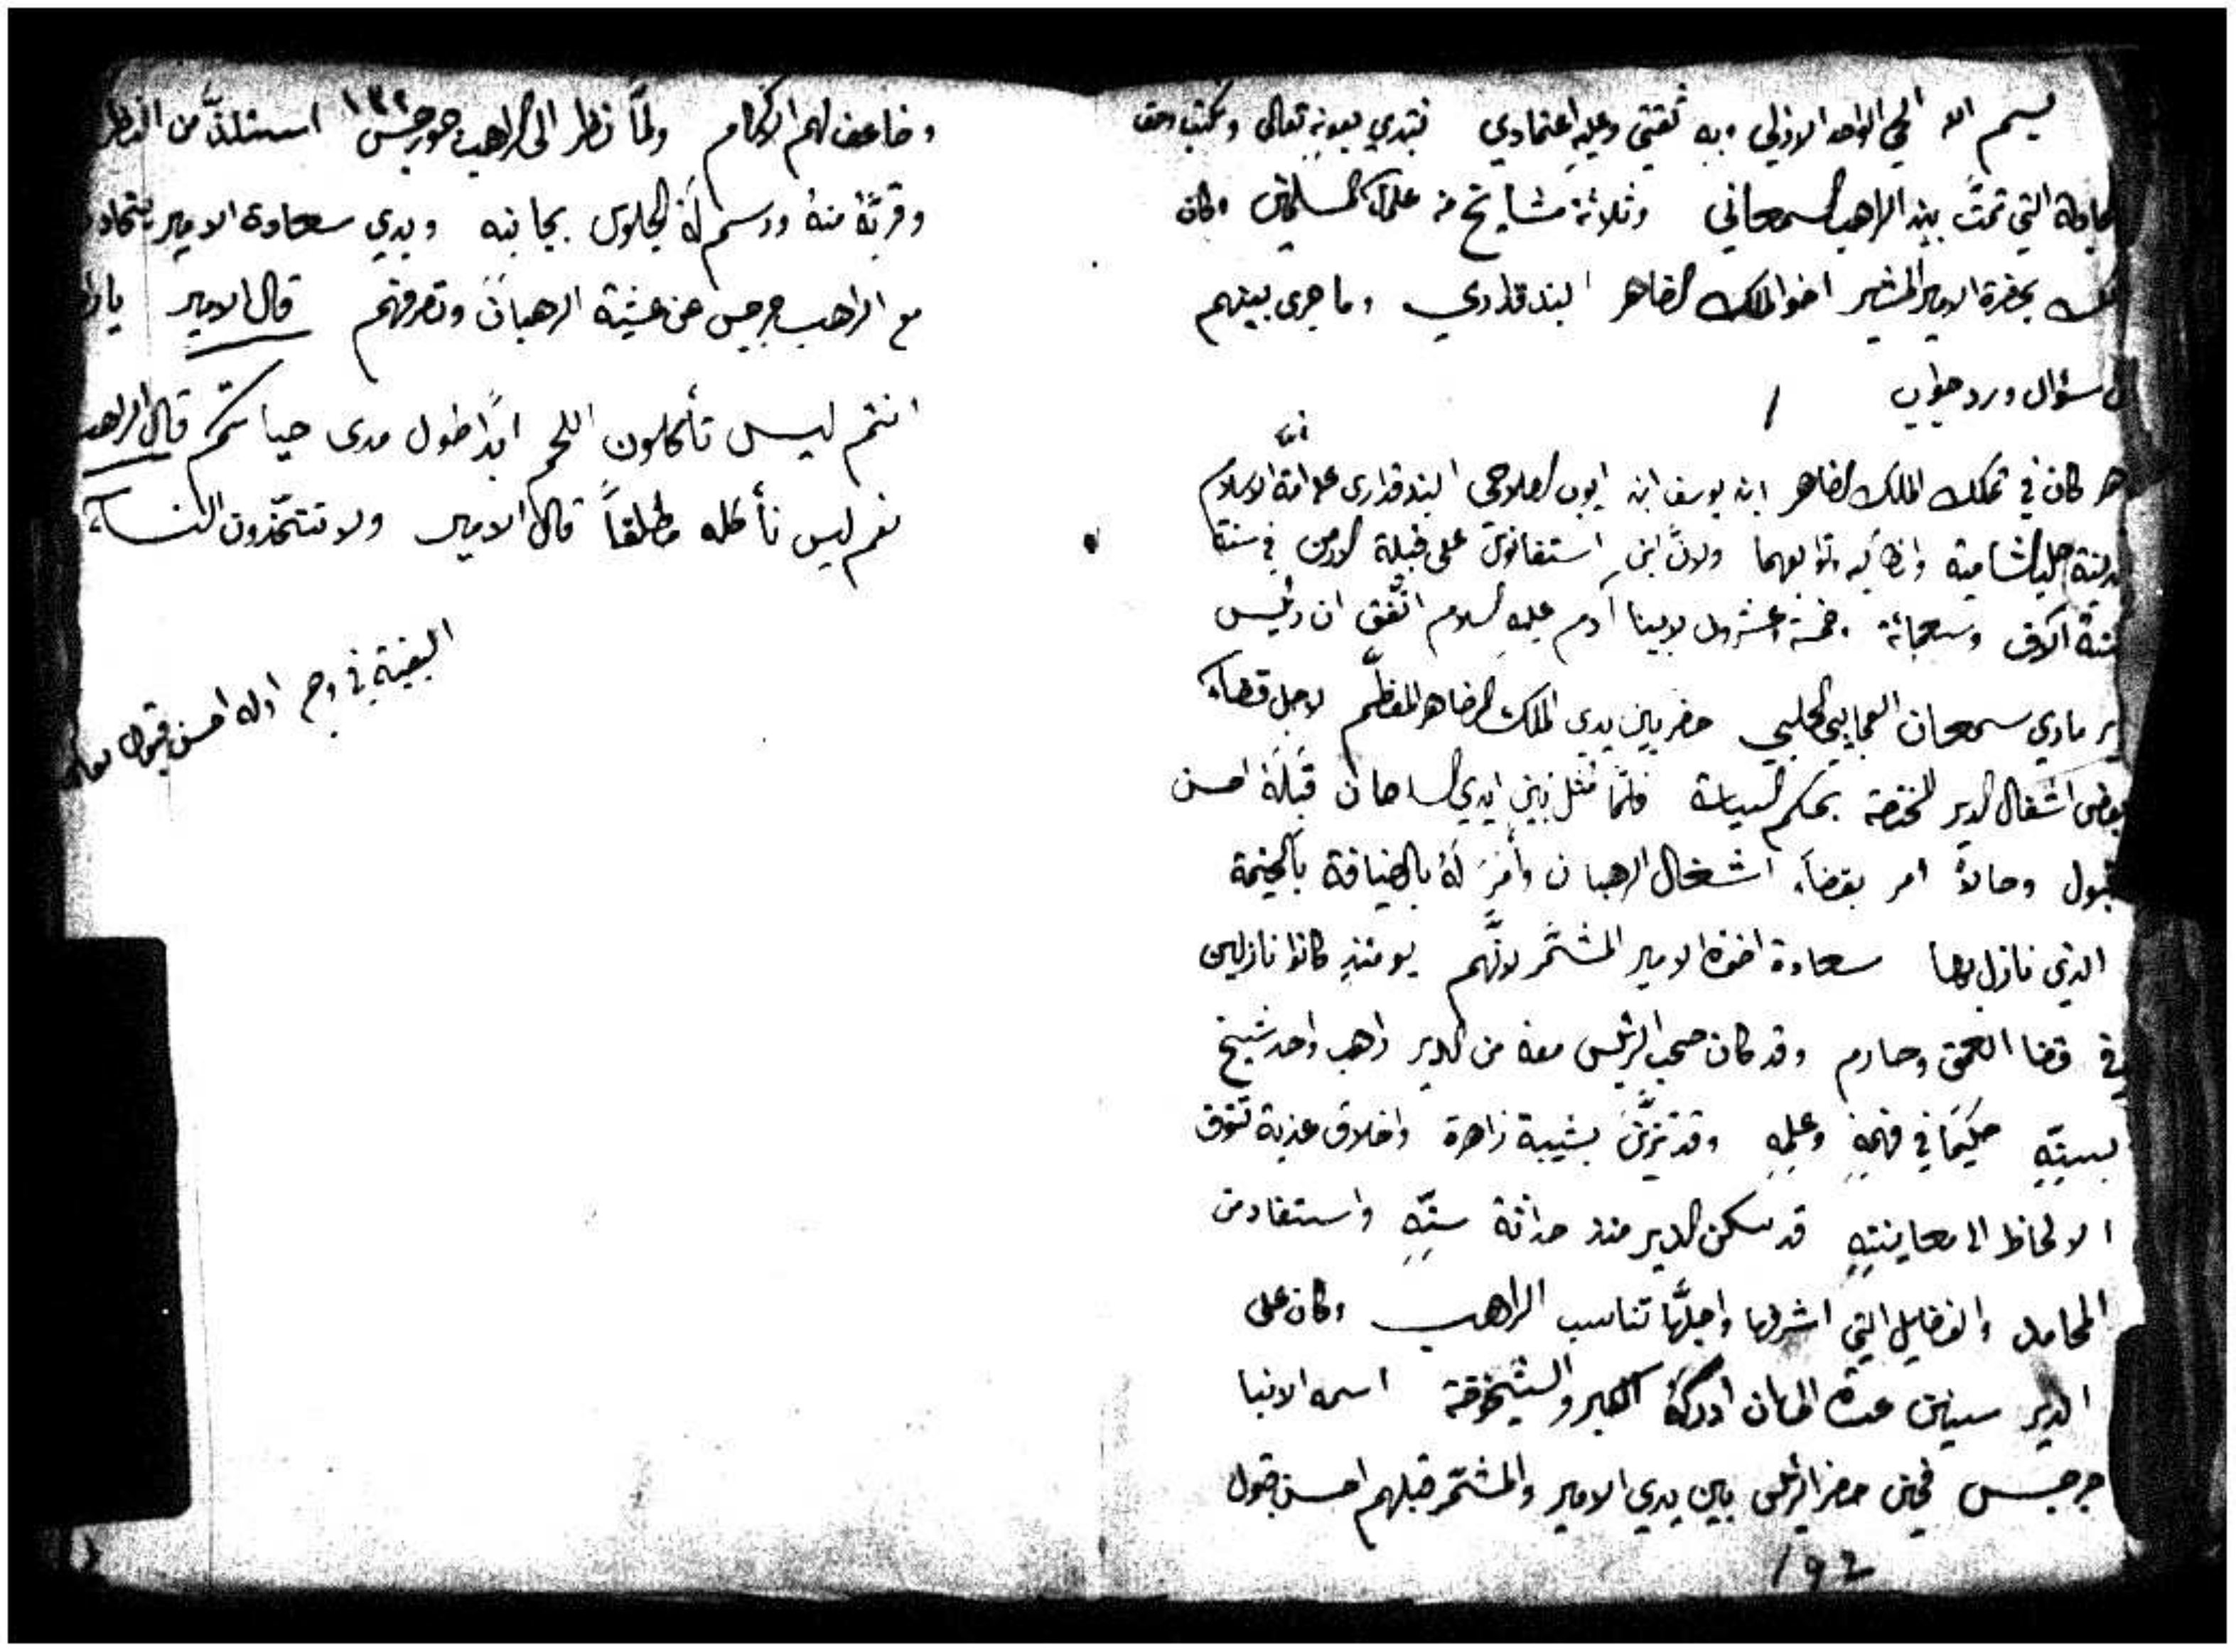 بسم الله الحي الواحد الازلي وبه ثقتي وعليه اعتمادي نبتدي بعونه تعالى ونكتب
المجادلة التي تمّت بين الراهب السمعاني وثلاثة مشايخ من علمآء المسلمين وكان
ذلك بحضرة الامير المشير اخو الملك الضاهر البندقداري وما جرى بينهم
من سؤال ورد جواب
١
كان في تملك الملك الضاهر ابن يوسف ابن ايوب الصلاحي البندقداري على امّة الاسلام
مدينة حلب الشامية وانطاكيه وتوابعهما ولاون ابن استفانوس على قبيلة الارمن في سنة
ستة آلاف وسبعمائة وخمسة وعشرون لابينا آدم عليه السلام اتّفق ان رئيس
دير ماري سمعان العجايبي الحلبي حضر بين يدي الملك الضاهر المعظّم لاجل قضآء
بعض اشغال الدير المختصة بحكم السياسة فلمّا مثل بين ايدي السلطان قبلَهُ احسن
قبول وحالاً امر بقضآء اشغال الرهبان وأمَرَ لهُ بالضيافة بالخيمة
الذي نازل بها سعادة اخوه الامير المشمّر لانّهم يومئذٍ كانوا نازلين
في قضا العمق وحارم وقد كان صحب الرئيس معه من الدير راهب واحد شيخ
بسنِّهِ حكيمًا في فهمهِ وعلمِهِ وقد تزيّن بشيبة زاهرة واخلاق عذبة تتوق
الالحاظ الى معاينتِهِ قد سكن الدير منذ حداثة سنِّهِ واستفاد من
المحامد والفضايل التي اشرفها واجلّها تناسب الراهب وكان على
الدير سنين عدة الى ان ادركهُ الكبر والشيخوخة اسمه الانبا
جرجس فحين حضر الرئيس بين يدي الامير والمشمّر قبلهم احسن قبول
192
وضاعف لهم الاكرام ولمّا نظر الى الراهب جورجس استلذّ من النظر
وقربّهُ منهُ ورسم لهُ الجلوس بجانبه وبدي سعادة الامير يتحادث
مع الراهب جرجس عن عيشة الرهبان وتصرفهم قال الامير يا
انتم ليس تأكلون اللحم ابدًا طول مدى حياتكم قال الراهب
نعم ليس نأكله مطلقاً قال الامير ولا تتخذون النسآء
البقية في وجه اوله احسن قبول